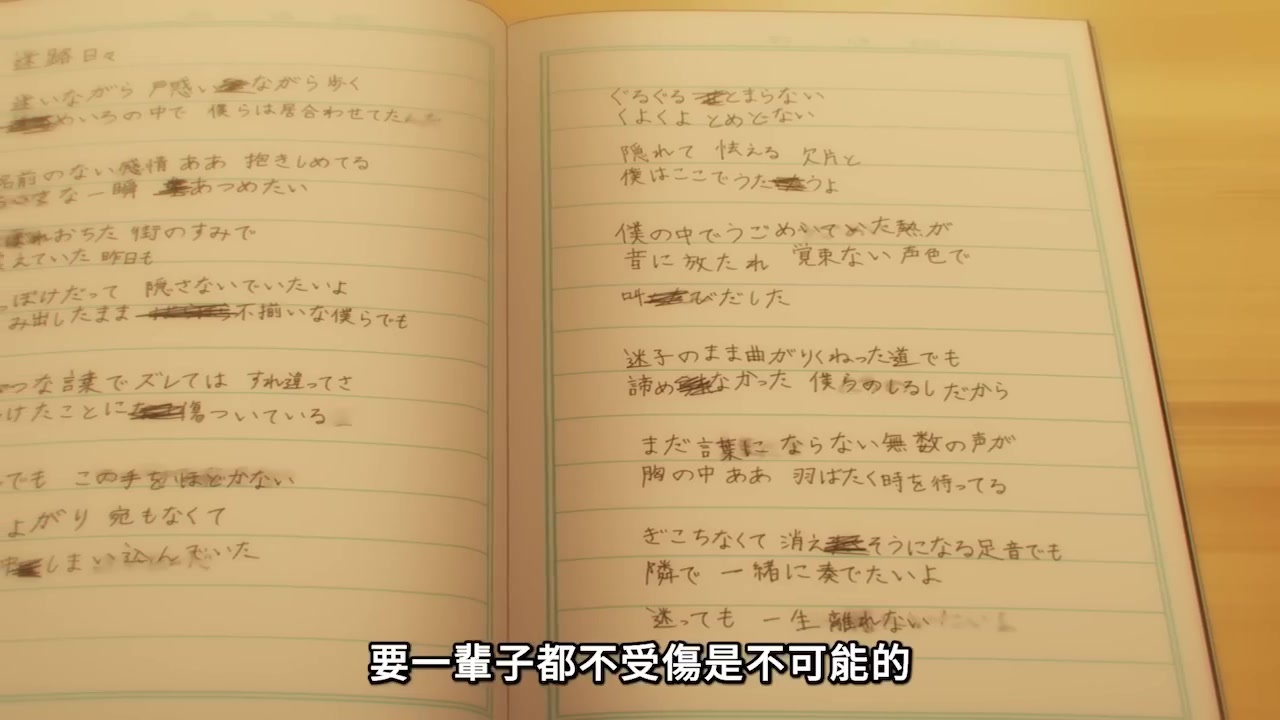 迷路日々
迷いながら 戸惑いながら歩く
めいろの中で 僕らは居合わせてた
名前のない感情 ああ 抱きしめてる
な一瞬 あつめたい
れおちた 街のすみで
えていた 昨日も
っぽけだって 隠さないでいたいよ
み出したまま 不揃いな僕らでも
つな言葉で ズレては すれ違ってさ
けたことに 傷ついている
でも この手をほどかない
よがり 宛もなくて
しまい込んでいた
ぐるぐる とまらない
くよくよ とめどない
隠れて 怯える 欠片と
僕はここでうたうよ
僕の中でうごめいてめた熱が
昔に放たれ 覚束ない声色で
叫びだした
迷子のまま曲がりくねった道でも
諦めなかった 僕らのしるしだから
まだ言葉に ならない無数の声が
胸の中 ああ 羽ばたく時を待ってる
ぎこちなくて 消えそうになる足音でも
隣で 一緒に奏でたいよ
迷っても 一生 離れない
要一輩子都不受傷是不可能的